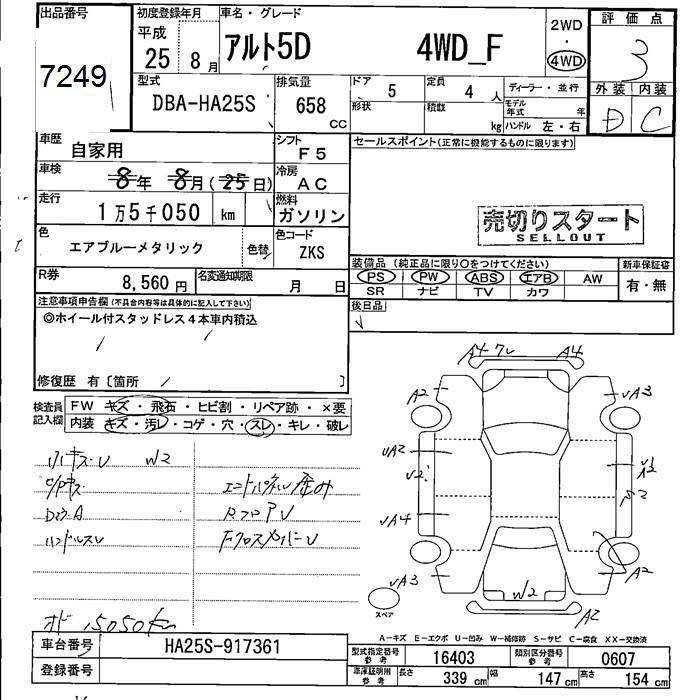 出品番号
7249
初度登録年月
平成
25年8月
車名・グレード
アルト5D 4WD_F
2WD
・
4WD
評価点
3
外装 内装
D C
型式
DBA-HA25S
排気量
658 CC
ドア 5
形状
定員 4 人
積載 kg
ディーラー・並行
モデル年式 年
ハンドル 左・右
車歴
自家用
シフト
F5
セールスポイント(正常に機能するものに限ります)
車検
8年 8月(25日)
冷房
AC
走行
1万5千050 km
燃料
ガソリン
売切りスタート
SELLOUT
色
エアブルーメタリック
色替
色コード
ZKS
装備品(純正品に限り○をつけてください)
PS PW ABS エアB AW
SR ナビ TV カワ
新車保証書
有・無
R券
8,560円
名変通知期限
月 日
後日品
注意事項申告欄(不具合内容等は具体的に記入して下さい)
◎ホイール付スタッドレス4本車内積込
修復歴 有〔箇所 〕
検査員記入欄
FW キズ・飛石・ヒビ割・リペア跡・×要
内装 キズ・汚レ・コゲ・穴・スレ・キレ・破レ
小キズU W2
ハンドルスレ
エンドパネル歪み
RフロアU
FクロスメンバーU
15050km
A4 A4
A2 UA3
UA2
UA4
UA3
A2
W2
A2
スペア
A-キズ E-エクボ U-凹み W-補修跡 S-サビ C-腐食 XX-交換済
車台番号
HA25S-917361
登録番号
型式指定番号 参考
16403
類別区分番号 参考
0607
車庫証明用 参考
長さ 339 cm
幅 147 cm
高さ 154 cm